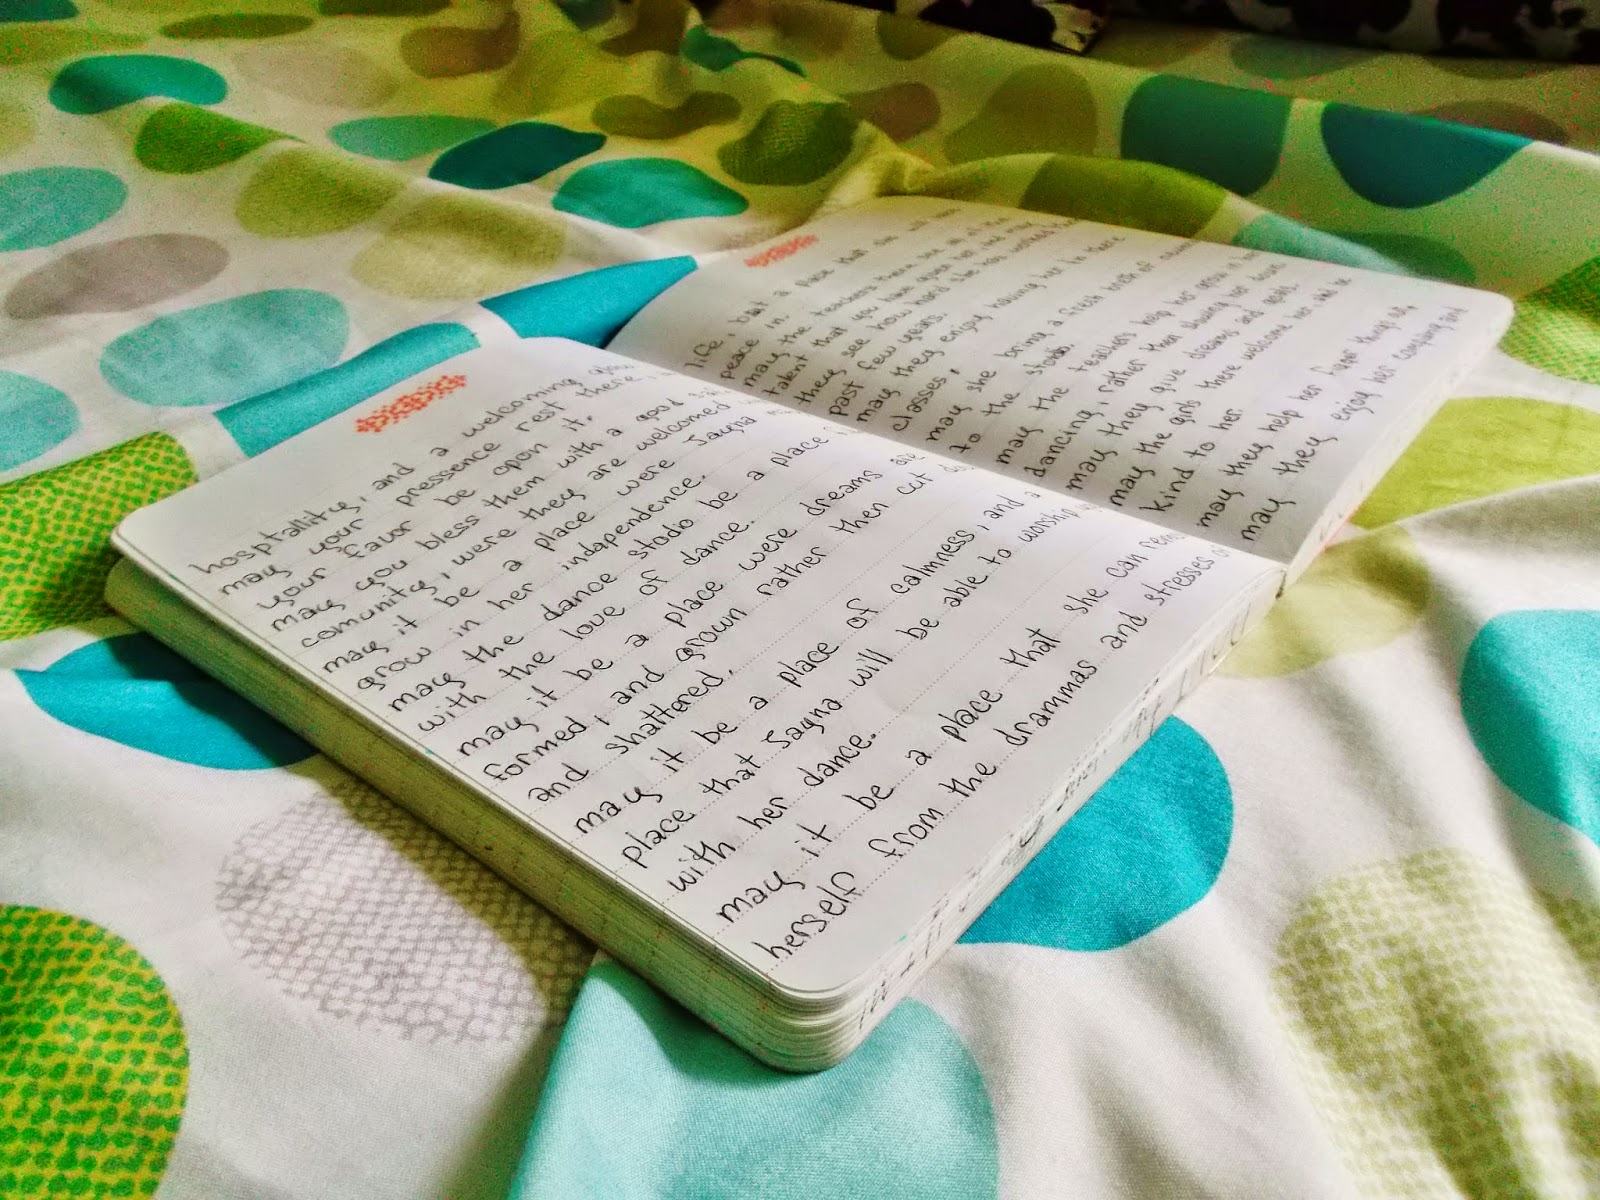 hospitallity, and a welcoming
may your pressence rest there,
your favor be opon it,
may you bless them with a good
comunity, were they are welcomed
may it be a place were Jayna
grow in her independence.
may the dance stodio be a place
with the love of dance.
may it be a place were dreams are
formed, and grown rather then cut
and shattered.
may it be a place of calmness, and a
place that Jayna will be able to worship
with her dance.
may it be a place that she can
herself from the drammas and stresses of
life, but a place that she will
peace in.
may the teachers there see all the
talent that you have given her, and
they see how hard she has worked the
past few years.
may they enjoy having her in there
classes,
may she bring a fresh breth of
to the stodo.
may the teachers help her grow in her
dancing, rather then slowing her down
may they give dreams and goals.
may the girls there welcome her and be
kind to her
may they help her figor things out,
may they enjoy her company and